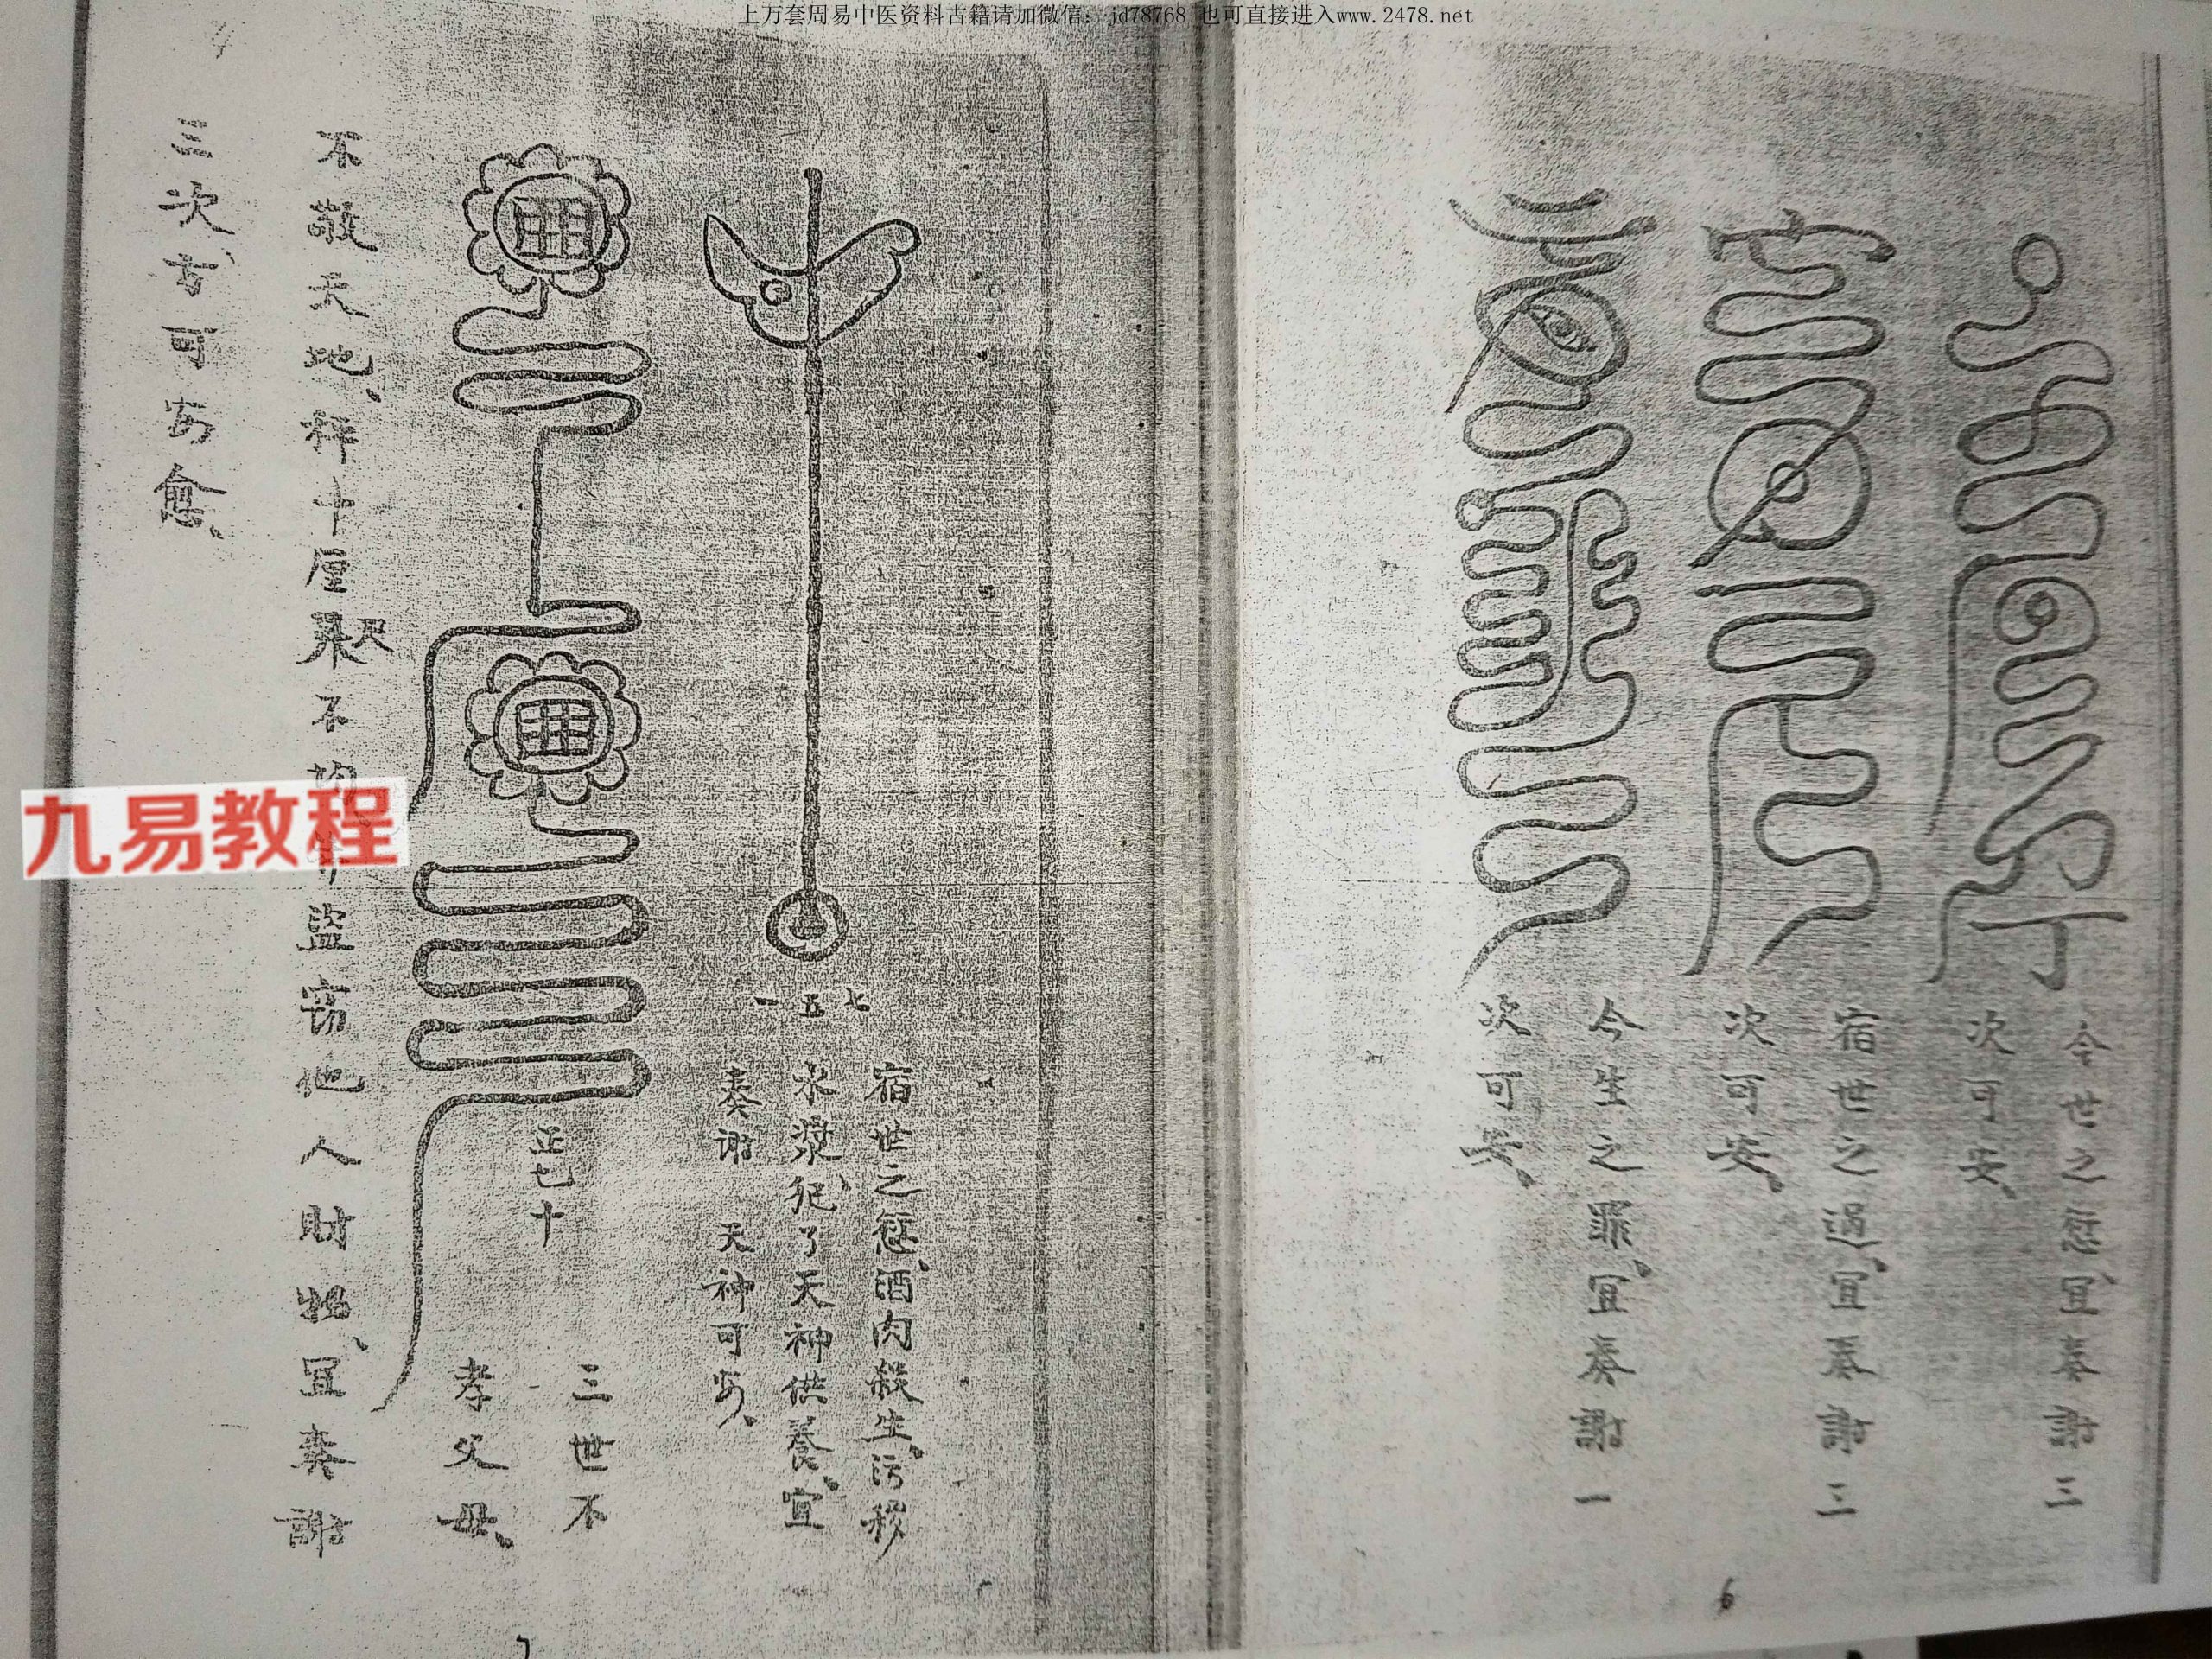 上万套周易中医资料古籍请加微信：jd78768 也可直接进入www.2478.net
今世之愆、宜奏謝三
次可安、
宿世之過、宜奏謝三
次可安、
今生之罪、宜奏謝一
次可安、
6
七
五
一
宿世之愆、酒肉殺生、污穢
水漿、犯了天神供養、宜
奏謝 天神可安、
正七十
三世不
孝父母、
不敬天地、秤十厘尺不均
盜窃他人財物、宜奏謝
三次方可安愈、
7
九易教程